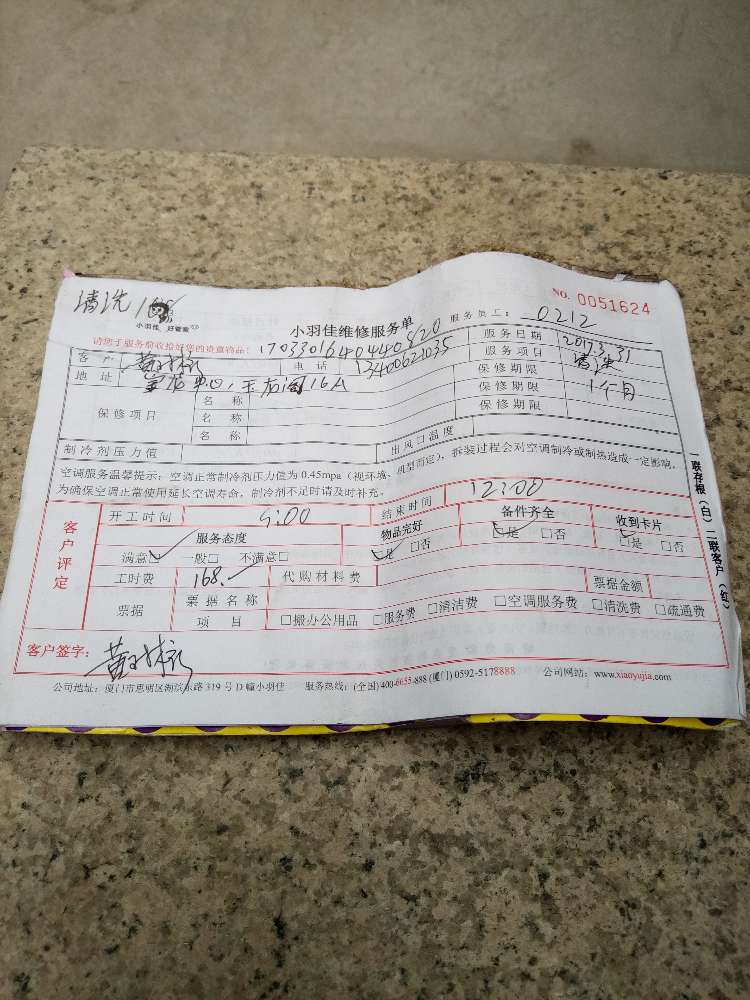 清洗168
NO. 0051624
小羽佳 好管家
小羽佳维修服务单
服务员工: 0212
请您于服务前收拾好您的贵重物品! 17033016404440820
服务日期 2017.3.31
客户 电话 13400621035 服务项目 清洗
地址 中心, 玉龙阁16A 保修期限 1个月
保修项目 名称 保修期限
名称 保修期限
名称
制冷剂压力值 出风口温度
空调服务温馨提示:空调正常制冷剂压力值为 0.45mpa(视环境、机型而定),拆装过程会对空调制冷或制热造成一定影响,
为确保空调正常使用延长空调寿命,制冷剂不足时请及时补充。
客户评定
开工时间 结束时间 12:00
服务态度 物品完好 备件齐全 收到卡片
满意□ 一般□ 不满意□ □是 □否 □是 □否 □是 □否
工时费 168.- 代购材料费
票据 票据名称 票据金额
项目 □搬办公用品 □服务费 □清洁费 □空调服务费 □清洗费 □疏通费
客户签字:
公司地址:厦门市思明区湖滨东路 319 号 D 幢小羽佳 服务热线:(全国)400-6655-888 (厦门) 0592-5178888 公司网站:www.xiaoyujia.com
一联存根(白)二联客户(红)